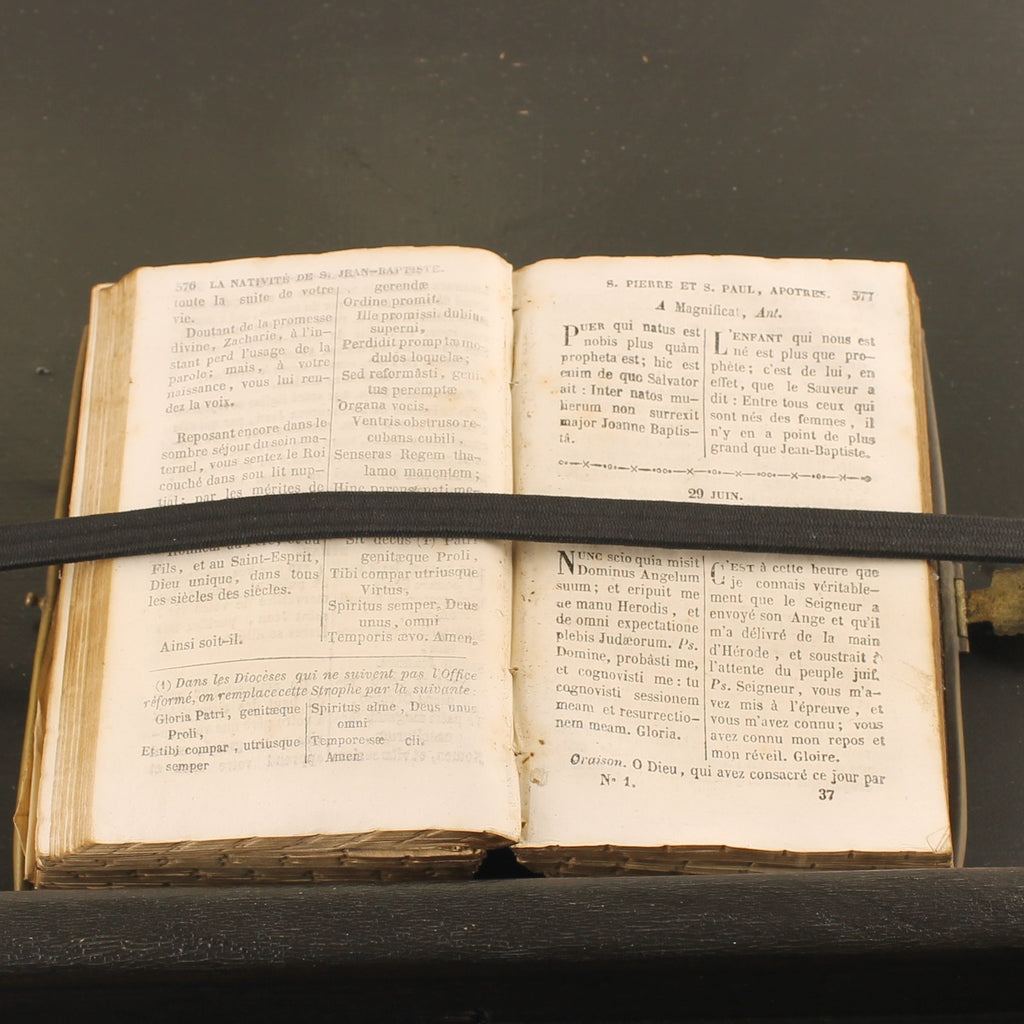 576 LA NATIVITÉ DE S. JEAN-BAPTISTE.
toute la suite de votre
vie.
Doutant de la promesse
divine, Zacharie, à l'in-
stant perd l'usage de la
parole; mais, à votre
naissance, vous lui ren-
dez la voix.
Reposant encore dans le
sombre séjour du sein ma-
ternel, vous sentez le Roi
couché dans son lit nup-
tial; par les mérites de
Fils, et au Saint-Esprit,
Dieu unique, dans tous
les siècles des siècles.
Ainsi soit-il.
gerendæ
Ordine promit.
Ille promissi dubius
superni,
Perdidit promptæ mo-
dulos loquelæ;
Sed reformâsti, geni
tus peremptæ
Organa vocis.
Ventris obstruso re-
cubans cubili,
Senseras Regem tha-
lamo manentem;
Hinc parens nati me-
Sit decus (1) Patri
genitæque Proli,
Tibi compar utriusque
Virtus,
Spiritus semper, Deus
unus, omni
Temporis ævo. Amen.
(1) Dans les Diocèses qui ne suivent pas l'Office
réformé, on remplace cette Strophe par la suivante:
Gloria Patri, genitæque
Proli,
Et tibi compar, utriusque
semper
Spiritus alme, Deus unus
omni
Tempore sæ cli.
Amen
S. PIERRE ET S. PAUL, APOTRES. 577
A Magnificat, Ant.
PUER qui natus est
nobis plus quàm
propheta est; hic est
enim de quo Salvator
ait : Inter natos mu-
lierum non surrexit
major Joanne Baptis-
tâ.
L'ENFANT qui nous est
né est plus que pro-
phète; c'est de lui, en
effet, que le Sauveur a
dit : Entre tous ceux qui
sont nés des femmes, il
n'y en a point de plus
grand que Jean-Baptiste.
29 JUIN.
NUNC scio quia misit
Dominus Angelum
suum; et eripuit me
de manu Herodis, et
de omni expectatione
plebis Judæorum. Ps.
Domine, probâsti me,
et cognovisti me : tu
cognovisti sessionem
meam et resurrectio-
nem meam. Gloria.
C'EST à cette heure que
je connais véritable-
ment que le Seigneur a
envoyé son Ange et qu'il
m'a délivré de la main
d'Hérode, et soustrait à
l'attente du peuple juif.
Ps. Seigneur, vous m'a-
vez mis à l'épreuve, et
vous m'avez connu; vous
avez connu mon repos et
mon réveil. Gloire.
Oraison. O Dieu, qui avez consacré ce jour par
N° 1.
37